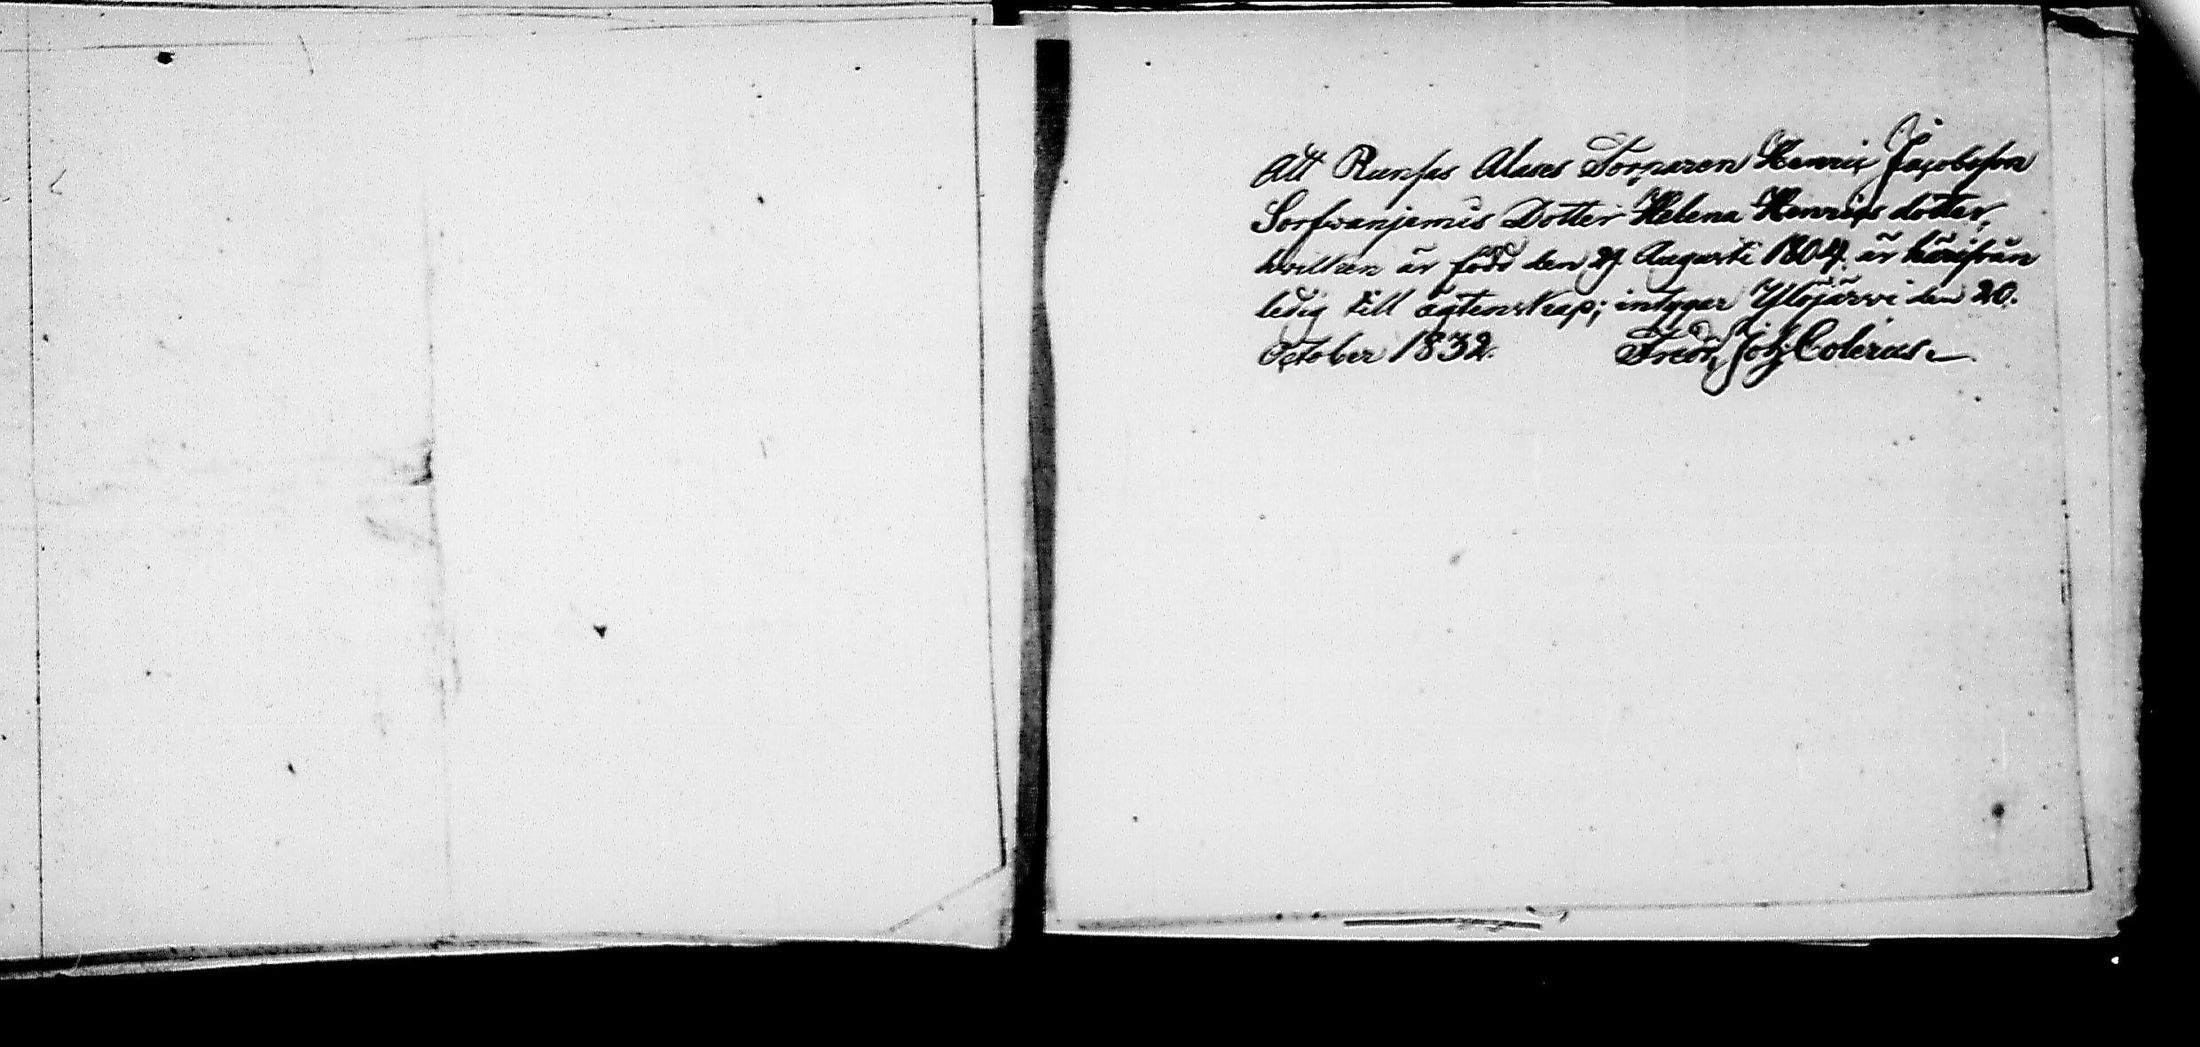 Att Runsas Alases Torparen Henric Jacobsson
Sorfvanjemis Dotter Helena Henrics dotter,
hvilken är född den 29 Augusti 1804. är härifrån
ledig till ägtenskap; intygar Ylöjärvi den 20.
October 1832. Fredr. Joh. Colerus.